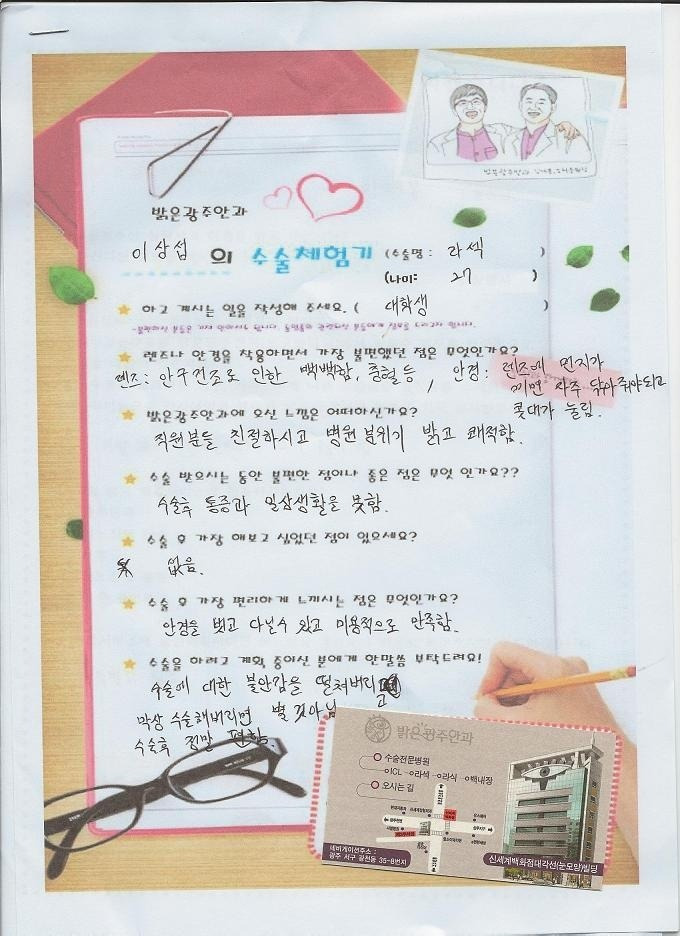 밝은광주안과
이상섭 의 수술체험기 (수술명: 라섹 )
(나이: 27 )
하고 계시는 일을 작성해 주세요. ( 대학생 )
렌즈나 안경을 착용하면서 가장 불편했던 점은 무엇인가요?
렌즈: 안구건조로 인한 뻑뻑함, 충혈 등 , 안경: 렌즈에 먼지가
끼면 자주 닦아줘야되고
콧대가 눌림.
밝은광주안과에 오신 느낌은 어떠하신가요?
직원분들 친절하시고 병원 분위기 밝고 쾌적함.
수술 받으시는 동안 불편한 점이나 좋은 점은 무엇 인가요??
수술후 통증과 일상생활을 못함.
수술 후 가장 해보고 싶었던 점이 있으세요?
없음.
수술 후 가장 편리하게 느끼시는 점은 무엇인가요?
안경을 벗고 다닐수 있고 미용적으로 만족함.
수술을 하려고 계획 중이신 분에게 한말씀 부탁드려요!
수술에 대한 불안감을 떨쳐버리고
막상 수술해버리면 별 것아님
수술후 정말 편함
밝은광주안과
수술전문병원
ICL 라섹 라식 백내장
오시는 길
네비게이션주소 :
광주 서구 광천동 35-8번지
신세계백화점대각선(눈모양)빌딩